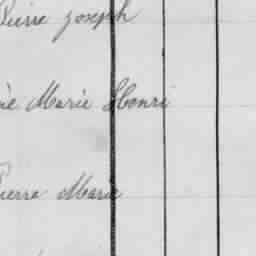 Pierre joseph
Marie Henri
Pierre Marie